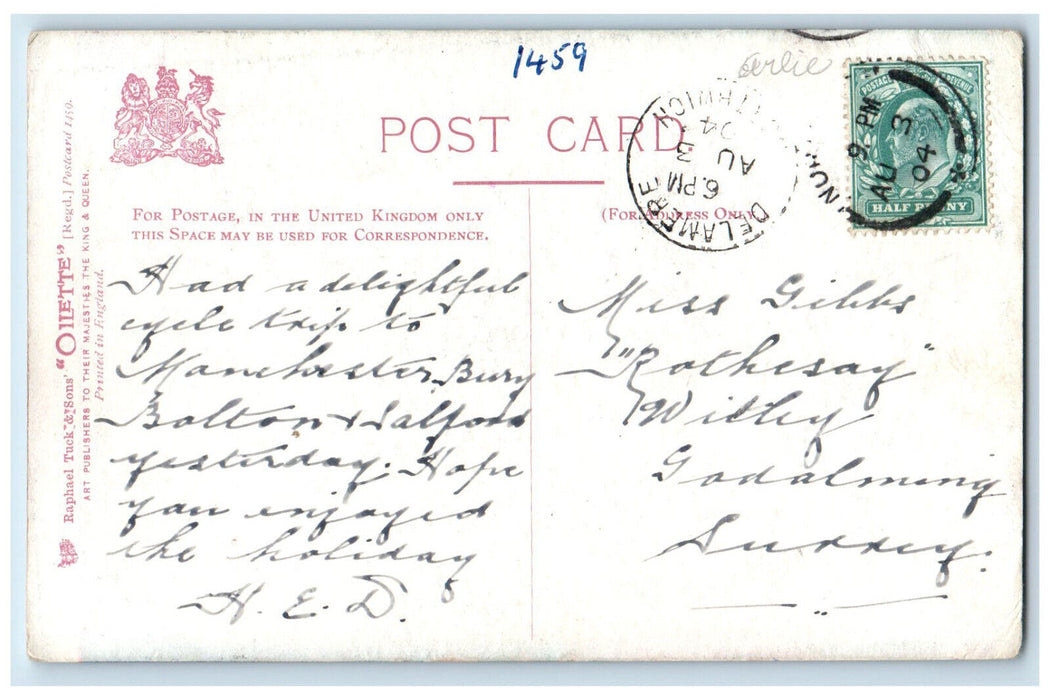 1459
POST CARD
FOR POSTAGE, IN THE UNITED KINGDOM ONLY
THIS SPACE MAY BE USED FOR CORRESPONDENCE.
(FOR ADDRESS ONLY)
Raphael Tuck & Sons' "OILETTE" [Regd.] Postcard 1459.
ART PUBLISHERS TO THEIR MAJESTIES THE KING & QUEEN.
Printed in England.
Had a delightful
cycle trip to
Manchester, Bury
Bolton & Salford
yesterday. Hope
you enjoyed
the holiday
H. E. D.
Miss Gibbs
"Rothesay"
Witley
Godalming
Surrey.
DELAMERE
6.PM
AU 3
04
9. PM
AU 3
04
POSTAGE REVENUE
HALF PENNY